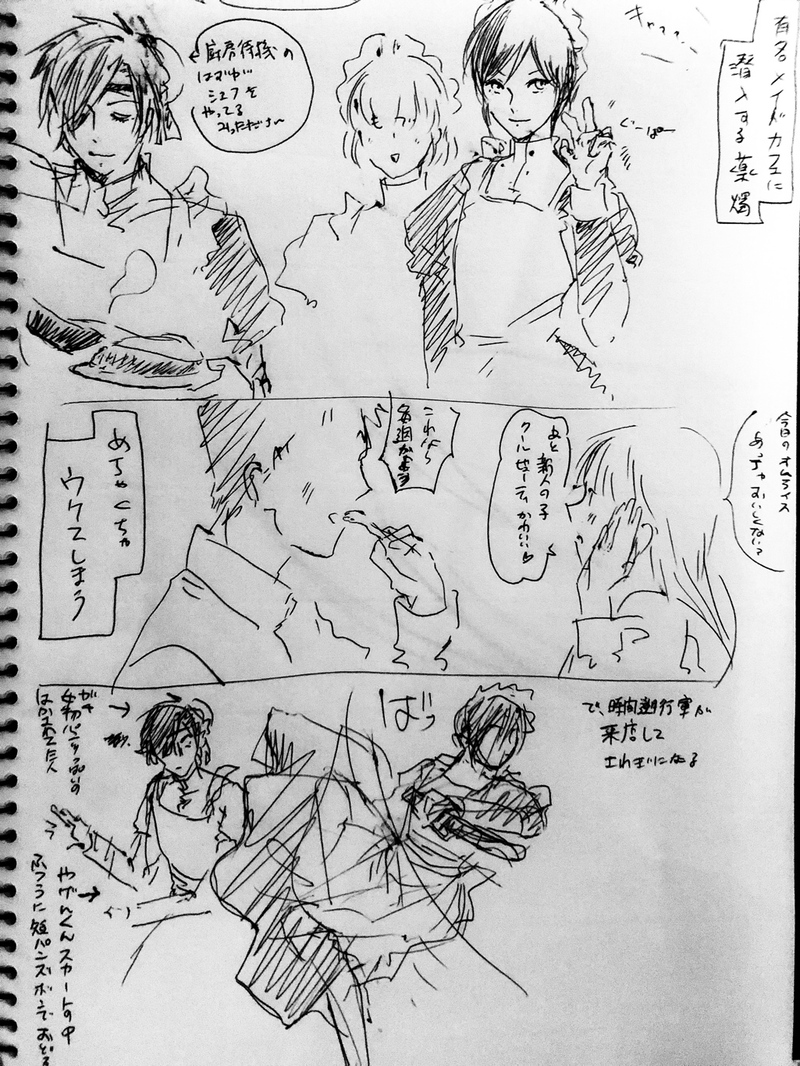 有名メイドカフェに
潜入する薬燭
キャァァ…
ぐーぱー
厨房待機の
はずが
シェフを
やってる
みっただサン
今日のオムライス
めっちゃおいしくない?
あと新人の子
クールビューティかわいい♡
これなら
毎週かよう
めちゃくちゃ
ウケてしまう
で、時間遡行軍が
来店して
ばっ
やげんくんスカートの中
ふつうに短パンズボンで